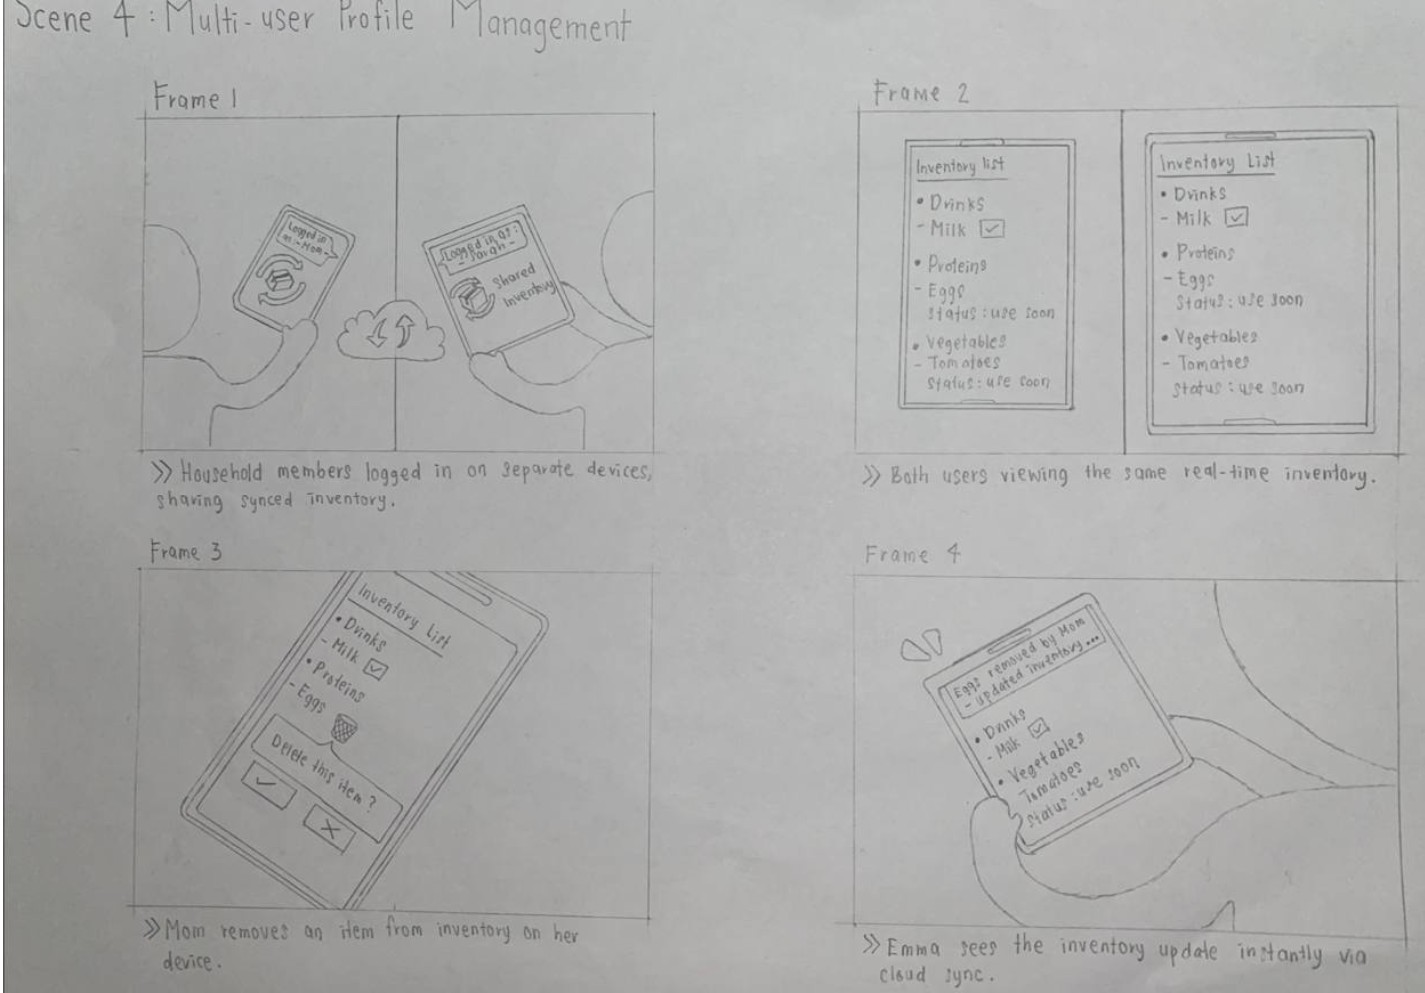 Scene 4 : Multi-user Profile Management
Frame 1
Logged in
as : - Mom -
Logged in as :
- Sarah -
Shared
Inventory
>> Household members logged in on separate devices,
sharing synced inventory.
Frame 2
Inventory list
• Drinks
- Milk
• Proteins
- Eggs
Status : use soon
• Vegetables
- Tomatoes
Status : use soon
Inventory List
• Drinks
- Milk
• Proteins
- Eggs
Status : use soon
• Vegetables
- Tomatoes
Status : use soon
>> Both users viewing the same real-time inventory.
Frame 3
Inventory List
• Drinks
- Milk
• Proteins
- Eggs
Delete this item ?
>> Mom removes an item from inventory on her
device.
Frame 4
Eggs removed by Mom
- updated inventory...
• Drinks
- Milk
• Vegetables
Tomatoes
Status : use soon
>> Emma sees the inventory update instantly via
cloud sync.